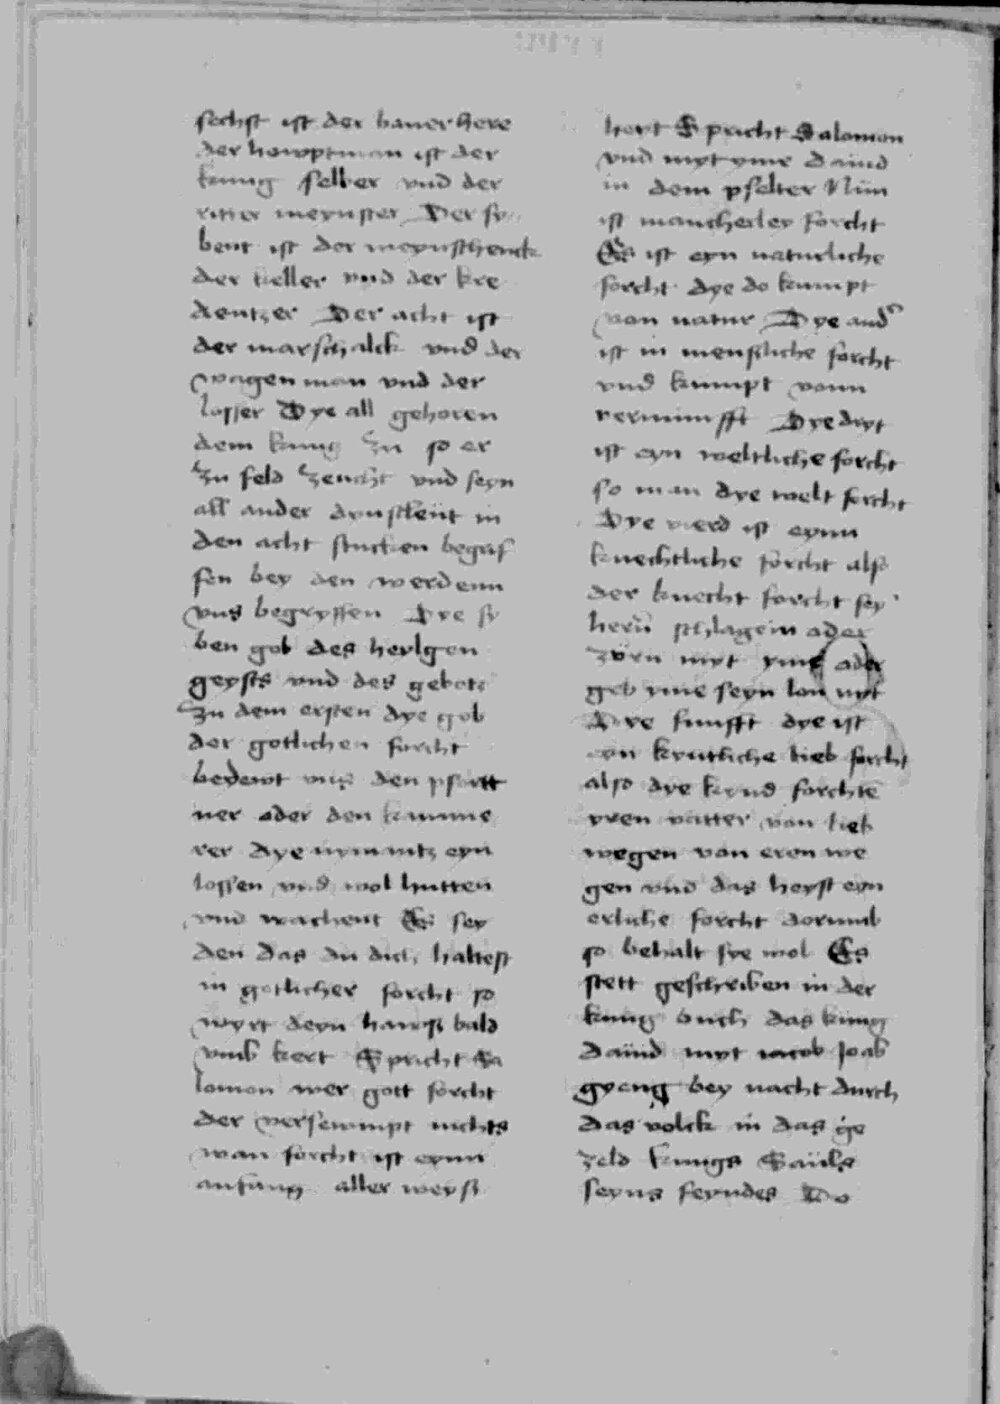 sechst ist der baner here
der howptman ist der
kunig selber vnd der
ritter meynster Der sy
bent ist der weynschenck
der keller vnd der kre
dentzer Der acht ist
der marschalck vnd der
wagenman vnd der
losser Dye all gehoren
dem kunig zu so er
zu feld zeucht vnd seyn
all ander dynstleut in
den acht stucken begrif
fen bey den werdenn
vns begryffen Dye sy
ben gob des heylgen
geysts vnd des gebetz
Zu dem ersten dye gob
der gotlichen forcht
bedewt vns den pfortt
ner oder den kamme
rer dye nymantz eyn
lossen vnd wol hutten
vnd wachent Es sey
den das du dich haltest
in gotlicher forcht so
wyrt deyn hawss bald
vmb kert Spricht Sa
lomon wer gott forcht
der versewmpt nichts
wan forcht ist eynn
anfang aller weyss
heyt Spricht Salomon
vnd myt yme dauid
in dem pselter Nun
ist mancherley forcht
Es ist eyn naturliche
forcht dye do kumpt
von natur Dye and
ist in mensliche forcht
vnd kumpt vonn
vernunfft Dye dryt
ist eyn weltliche forcht
so man dye welt forcht
Dye vierd ist eynn
knechtliche forcht also
der knecht forcht sey
hern schlagein oder
zorn myt yme oder
geb yme seyn lon nyt
Dye funfft dye ist
eyn kyntliche lieb forcht
also dye kynd forchte
yren vatter von lieb
wegen von eren we
gen vnd das heyst eyn
erliche forcht dorumb
so behalt sye wol Es
stett geschriben in der
kunig buch das kunig
dauid myt iacob Joab
gyeng bey nacht durch
das volck in das ge
zeld kunigs Sauls
seyns feyndes Do